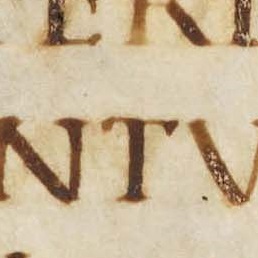 ER
NTV